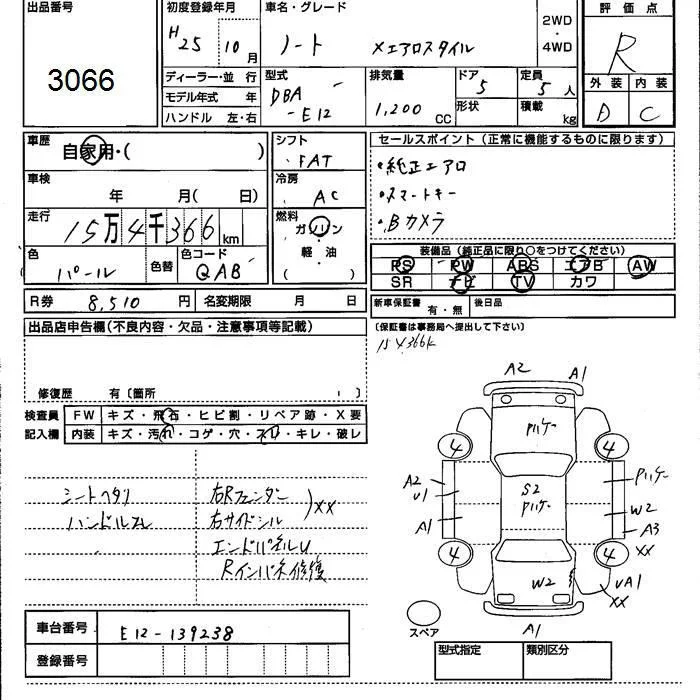 出品番号
3066
初度登録年月
H25 10月
車名・グレード
ノート Xエアロスタイル
2WD
・
4WD
評価点
R
ディーラー・並行
モデル年式 年
ハンドル 左・右
型式
DBA
-E12
排気量
1,200 CC
ドア
5
形状
定員
5人
積載
kg
外装 内装
D C
車歴
自家用・( )
車検
年 月( 日)
走行
15万4千366km
色
パール
色替
色コード
QAB
シフト
FAT
冷房
AC
燃料
ガソリン
軽・油
( )
セールスポイント(正常に機能するものに限ります)
・純正エアロ
・スマートキー
・Bカメラ
装備品(純正品に限り○をつけてください)
PS PW ABS エアB AW
SR ナビ TV カワ
R券 8,510円 名変期限 月 日
新車保証書 有・無 後日品
(保証書は事務局へ提出して下さい)
出品店申告欄(不良内容・欠品・注意事項等記載)
修復歴 有〔箇所 〕
検査員 FW キズ・飛石・ヒビ割・リペア跡・X要
記入欄 内装 キズ・汚れ・コゲ・穴・スレ・キレ・破レ
シートヘタリ
ハンドルスレ
右Rフェンダー
右サイドシル
XX
エンドパネルU
Rインパネ修復
A2 A1
Pハケー
4 4
A2
U1
S2
Pハケー
Pハケー
W2
A1
A3
XX
4 4
W2
UA1
XX
A1
スペア
車台番号 E12-139238
登録番号
型式指定 類別区分